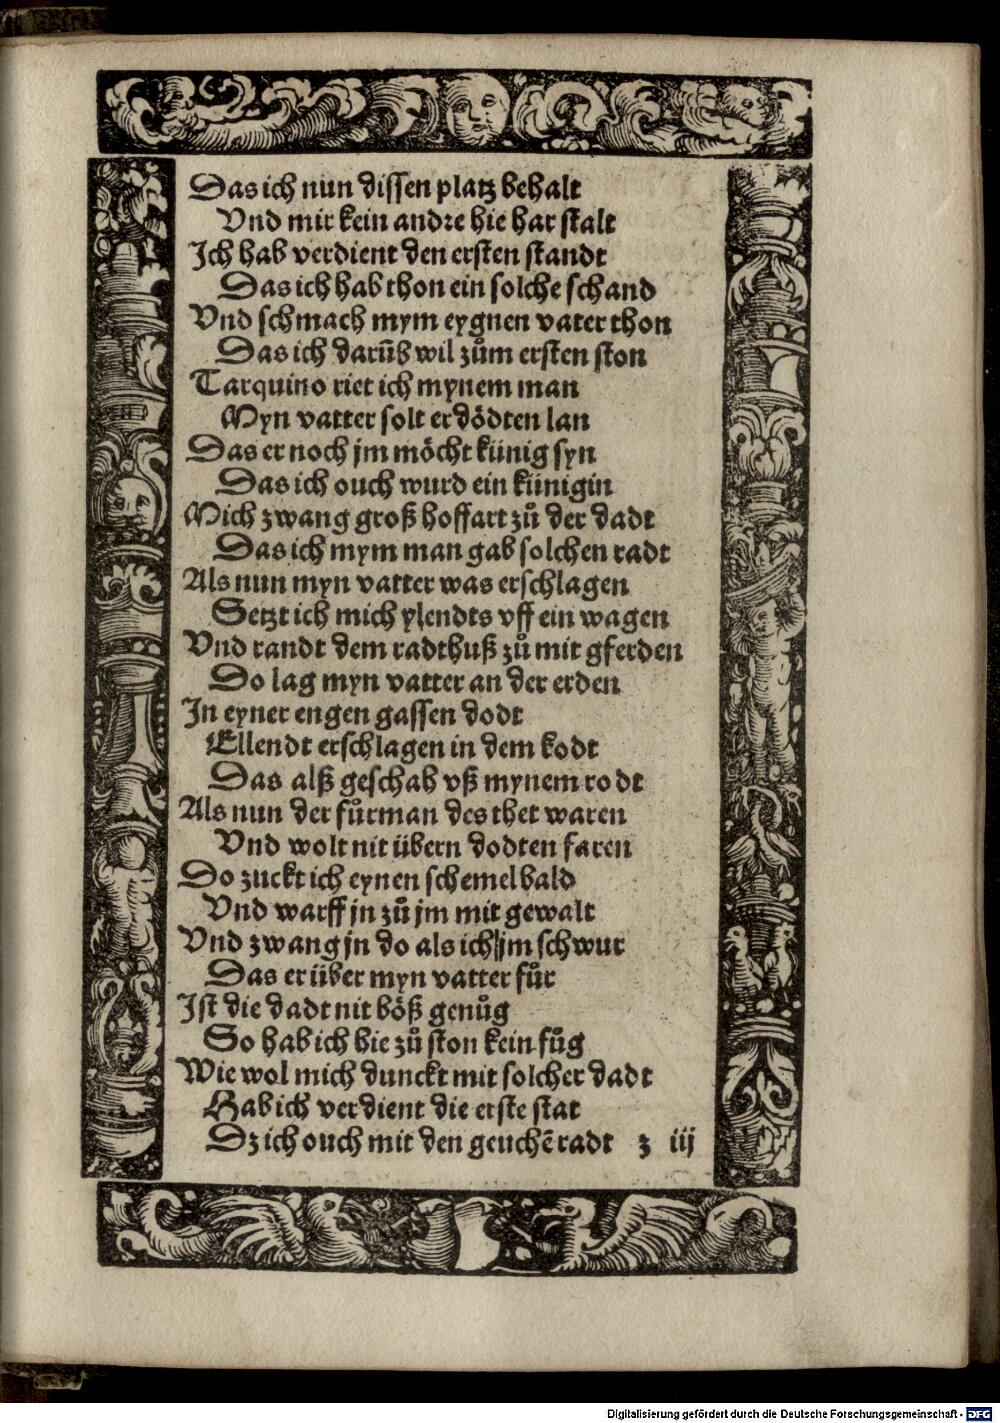 Das ich nun dissen platz behalt
Vnd mir kein andre hie har stalt
Ich hab verdient den ersten standt
Das ich hab thon ein solche schand
Vnd schmach mym eygnen vater thon
Das ich darūb wil zům ersten ston
Tarquino riet ich mynem man
Myn vatter solt er dödten lan
Das er noch jm möcht künig syn
Das ich ouch wurd ein künigin
Mich zwang groß hoffart zů der dadt
Das ich mym man gab solchen radt
Als nun myn vatter was erschlagen
Setzt ich mich ylendts vff ein wagen
Vnd randt dem radthuß zů mit gferden
Do lag myn vatter an der erden
In eyner engen gassen dodt
Ellendt erschlagen in dem kodt
Das alß geschah vß mynem rodt
Als nun der fůrman des thet waren
Vnd wolt nit übern dodten faren
Do zuckt ich eynen schemel bald
Vnd warff jn zů jm mit gewalt
Vnd zwang jn do als ich jm schwur
Das er über myn vatter fůr
Ist die dadt nit böß genůg
So hab ich hie zů ston kein fůg
Wie wol mich dunckt mit solcher dadt
Hab ich verdient die erste stat
Dz ich ouch mit den geuchē radt z iij
Digitalisierung gefördert durch die Deutsche Forschungsgemeinschaft - DFG